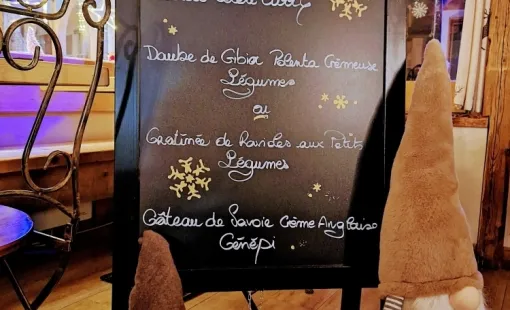 Curry
Daube de Gibier Polenta Crémeuse
Légumes
ou
Gratinée de Ravioles aux Petits
Légumes
Gâteau de Savoie Crème Anglaise
Génépi